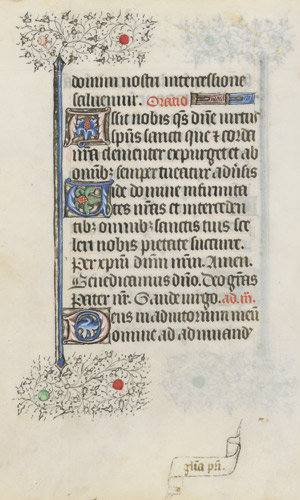 domini nostri intercessione
saluemur. Oratio
Assit nobis qs dñe uirtus
spūs sancti que et corda
nr̄a clementer expurget et ab
omnibꝫ semper tueatur aduersis
Vide domine infirmita
tes nr̄as et interceden
tibꝫ omnibꝫ sanctis tuis sce
leri nobis pietate succurre.
Per xp̄m dñm nr̄m. Amen.
Benedicamus dño. Deo gr̄as
Pater nr̄. Gaude uirgo. ad
Deus in adiutorium meū
Domine ad adiuuandū